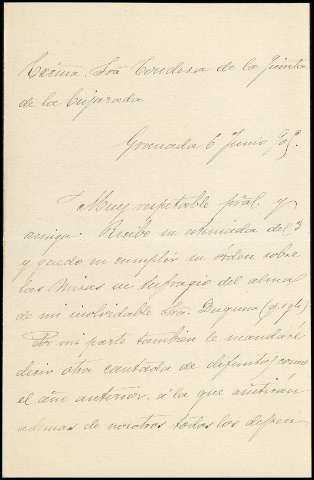 Excma. Sra. Condesa de la Quinta
de la Enjarada
Granada 6 Junio
Muy respetable Sra. y
amiga: Recibo su estimada del 3
y quedo en cumplir su órden sobre
las Misas en sufragio del alma
de mi inolvidable Sra. Duquesa (q.s.g.h.)
Por mi parte tambien le mandaré
decir otra cantada de difuntos como
el año anterior, á la que asistiran
además de nosotros todos los depen-